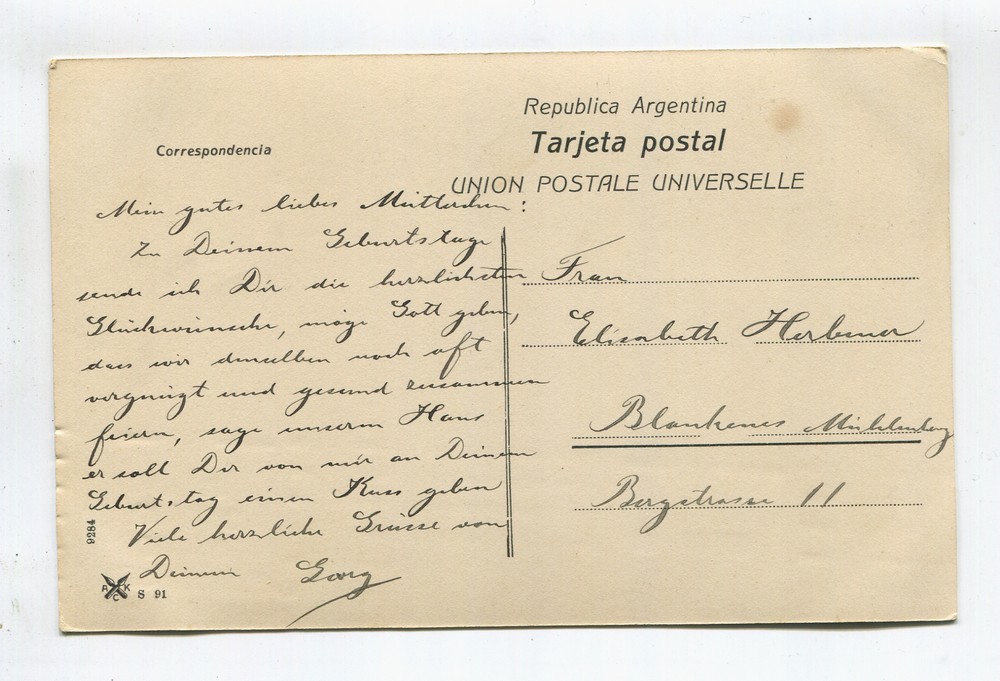 Republica Argentina
Tarjeta postal
UNION POSTALE UNIVERSELLE
Correspondencia
Mein gutes liebes Mütterchen:
Zu Deinem Geburtstage
sende ich Dir die herzlichsten
Glückwünsche, möge Gott geben,
dass wir denselben noch oft
vergnügt und gesund zusammen
feiern, sage unserm Hans
er soll Dir von mir an Deinem
Geburtstag einen Kuss geben
Viele herzliche Grüsse von
Deinem Georg
Frau
Elisabeth
Blankenes Mühlenberg
Bergstrasse 11
9284
A C K
S 91